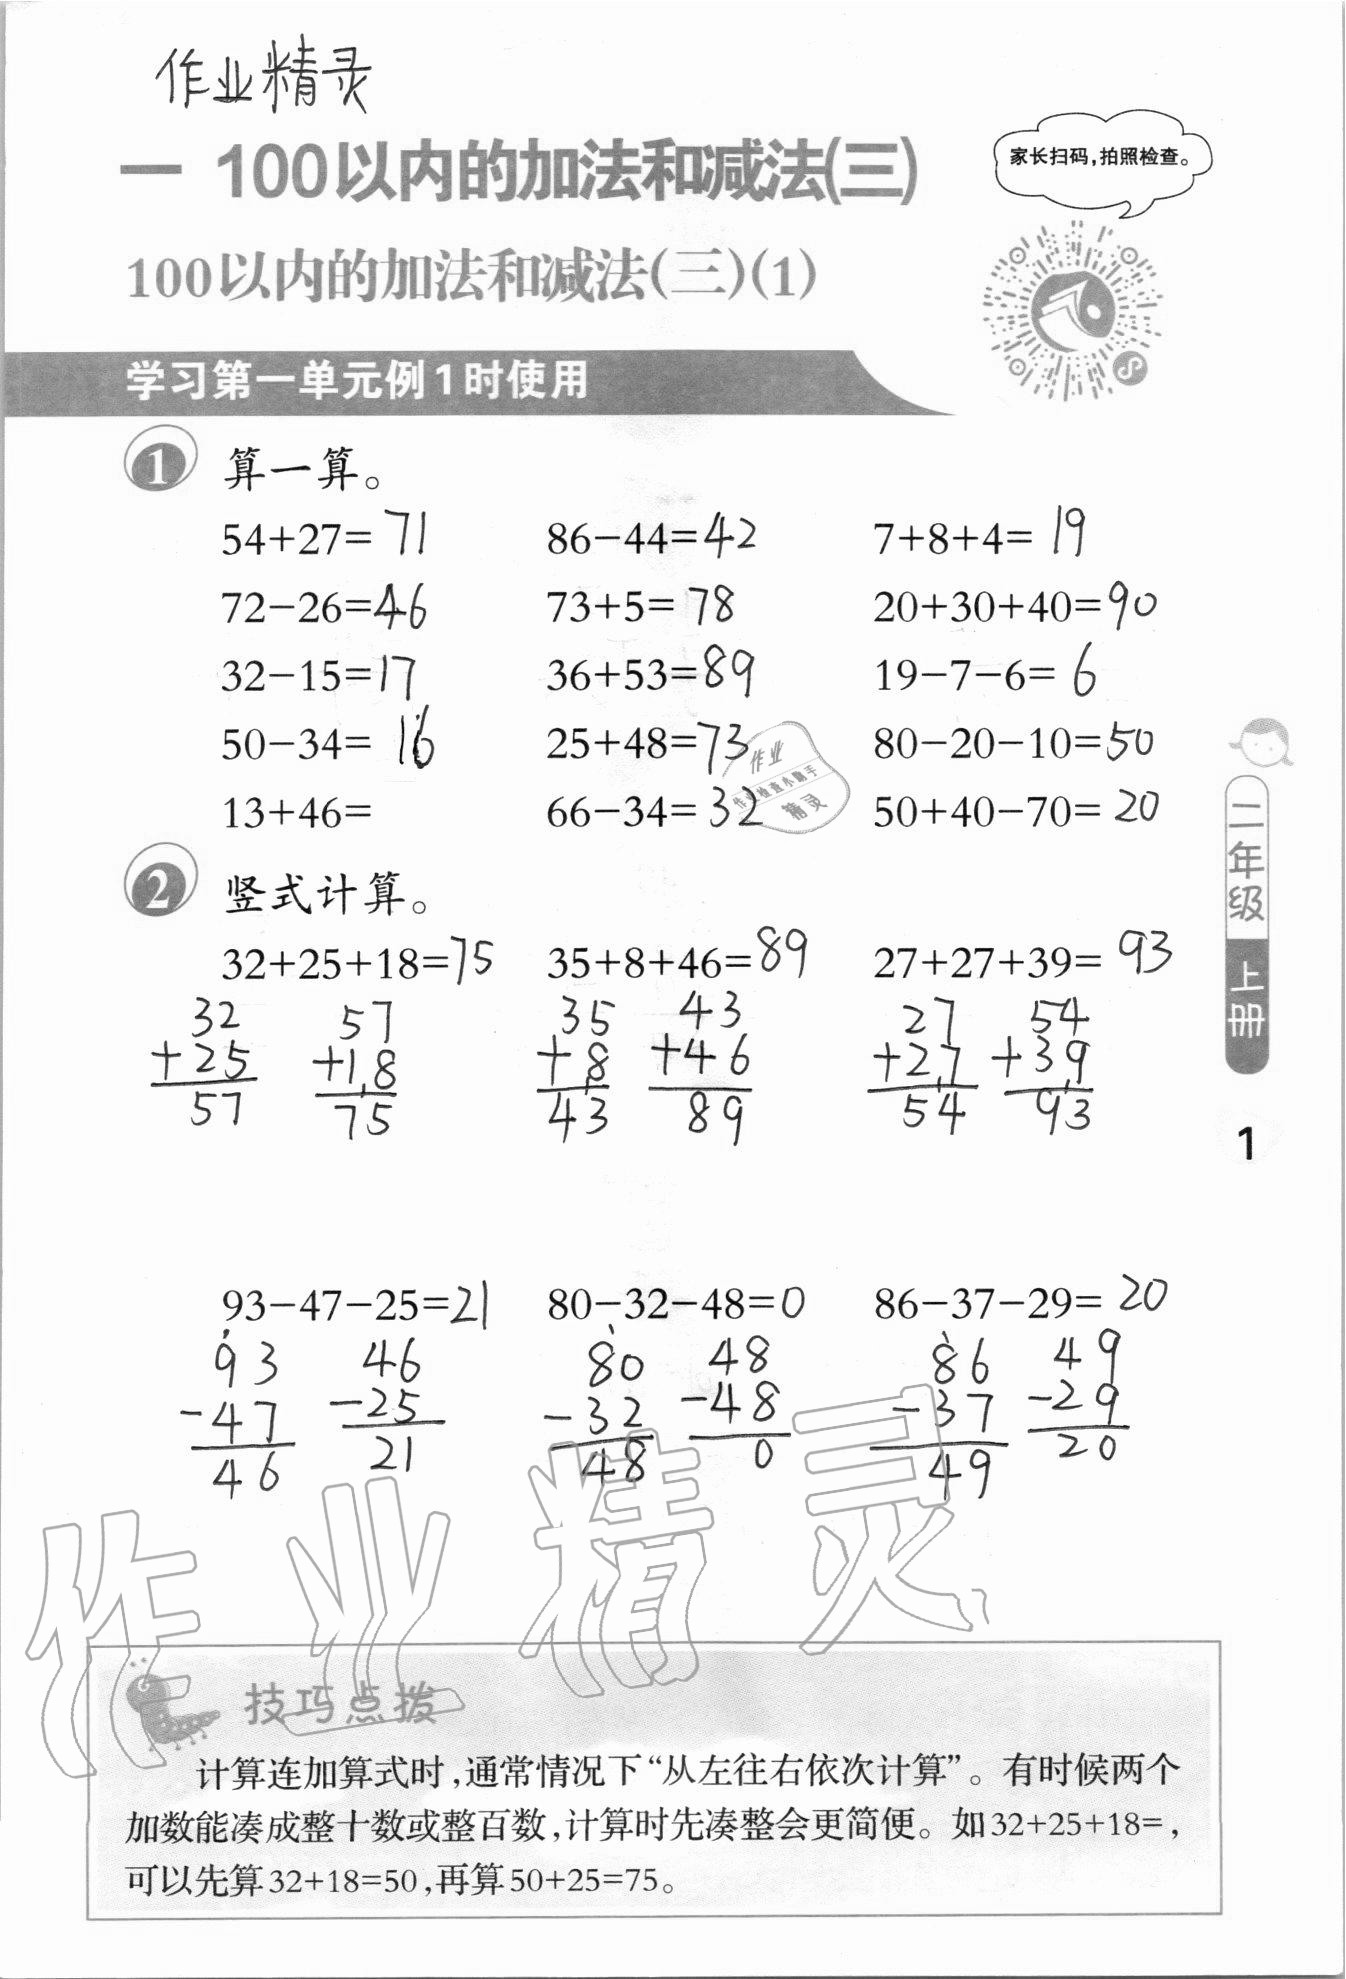 作业精灵
一 100以内的加法和减法(三)
家长扫码,拍照检查。
100以内的加法和减法(三)(1)
学习第一单元例1时使用
1 算一算。
54+27=71 86-44=42 7+8+4=19
72-26=46 73+5=78 20+30+40=90
32-15=17 36+53=89 19-7-6=6
50-34=16 25+48=73 80-20-10=50
13+46= 66-34=32 50+40-70=20
作业
作业检查小助手
精灵
2 竖式计算。
32+25+18=75 35+8+46=89 27+27+39=93
32 57 35 43 27 54
+25 +18 +8 +46 +27 +39
57 75 43 89 54 93
93-47-25=21 80-32-48=0 86-37-29=20
93 46 80 48 86 49
-47 -25 -32 -48 -37 -29
46 21 48 0 49 20
二年级
上册
1
作业精灵
技巧点拨
计算连加算式时,通常情况下“从左往右依次计算”。有时候两个
加数能凑成整十数或整百数,计算时先凑整会更简便。如32+25+18=,
可以先算32+18=50,再算50+25=75。